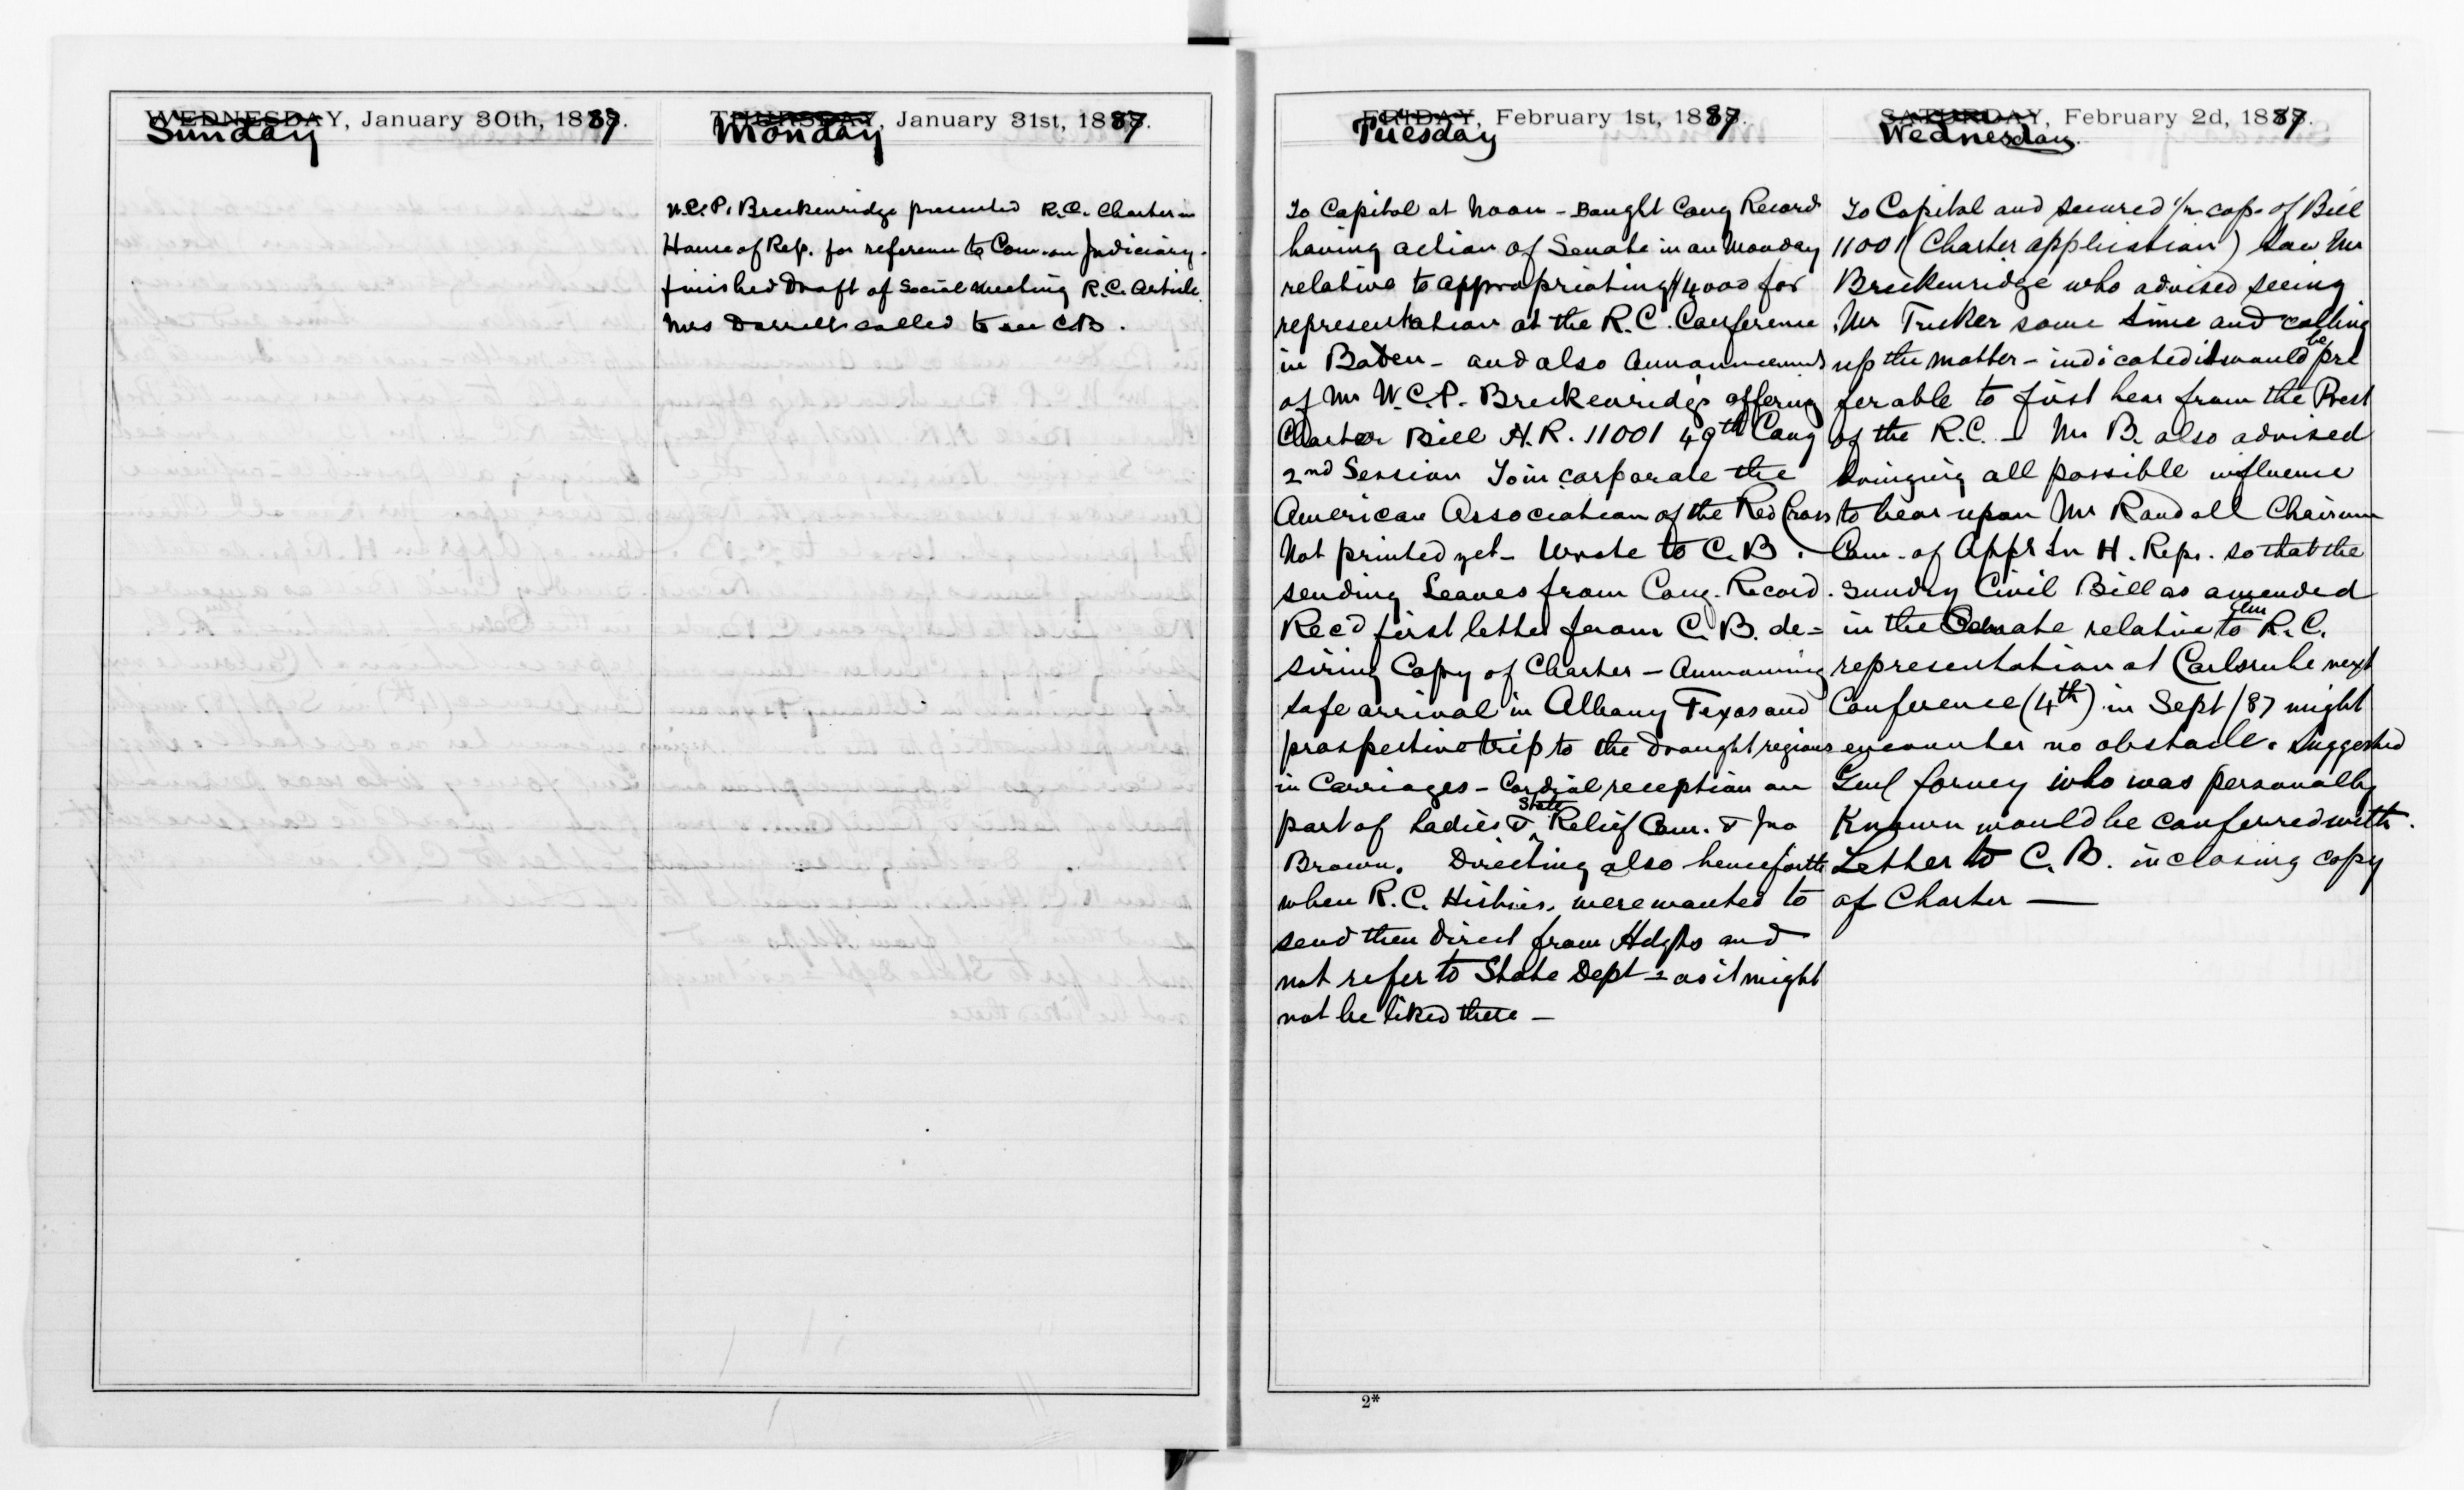 WEDNESDAY, January 30th, 1887.
Sunday
THURSDAY, January 31st, 1887.
Monday
W.C.P. Breckenridge presented R.C. Charter in
House of Rep. for reference to Com. on Judiciary.
finished Draft of Social Meeting R.C. Article.
Mrs called to see C.B.
FRIDAY, February 1st, 1887.
Tuesday
To Capitol at Noon - Bought Cong Record
having action of Senate in on Monday
relative to appropriating $4000 for
representation at the R.C. Conference
in Baden - and also Announcement
of Mr W.C.P. Breckenridge's offering
Charter Bill H.R. 11001 49th Cong
2nd Session To incorporate the
American Association of the Red Cross
Not printed yet - Wrote to C.B.
sending Leaves from Cong. Record.
Rec'd first letter from C.B. de=
siring Copy of Charter - Announcing
safe arrival in Albany Texas and
prospective trip to the Drought regions
in Carriages - Cordial reception on
part of Ladies & State Relief Com. & Jno
Brown. Directing also henceforth
when R.C. Histories. were wanted to
send them direct from Hdqrs and
not refer to State Dept - as it might
not be liked there -
SATURDAY, February 2d, 1887.
Wednesday.
To Capitol and secured 1/2 cop. of Bill
11001 (Charter application) saw Mr
Breckenridge who advised seeing
Mr Tucker some time and calling
up the matter - indicated it would be pre
ferable to first hear from the Prest
of the R.C. - Mr B. also advised
bringing all possible influence
to bear upon Mr Randall Chairman
Com. of Apprs in H. Reps. so that the
Sundry Civil Bill as amended
in the Senate relative to Am R.C.
representation at Carlsruhe next
Conference (4th) in Sept /87 might
encounter no obstacle. Suggested
Genl Forney who was personally
Known would be conferred with.
Letter to C.B. inclosing copy
of Charter —
2*